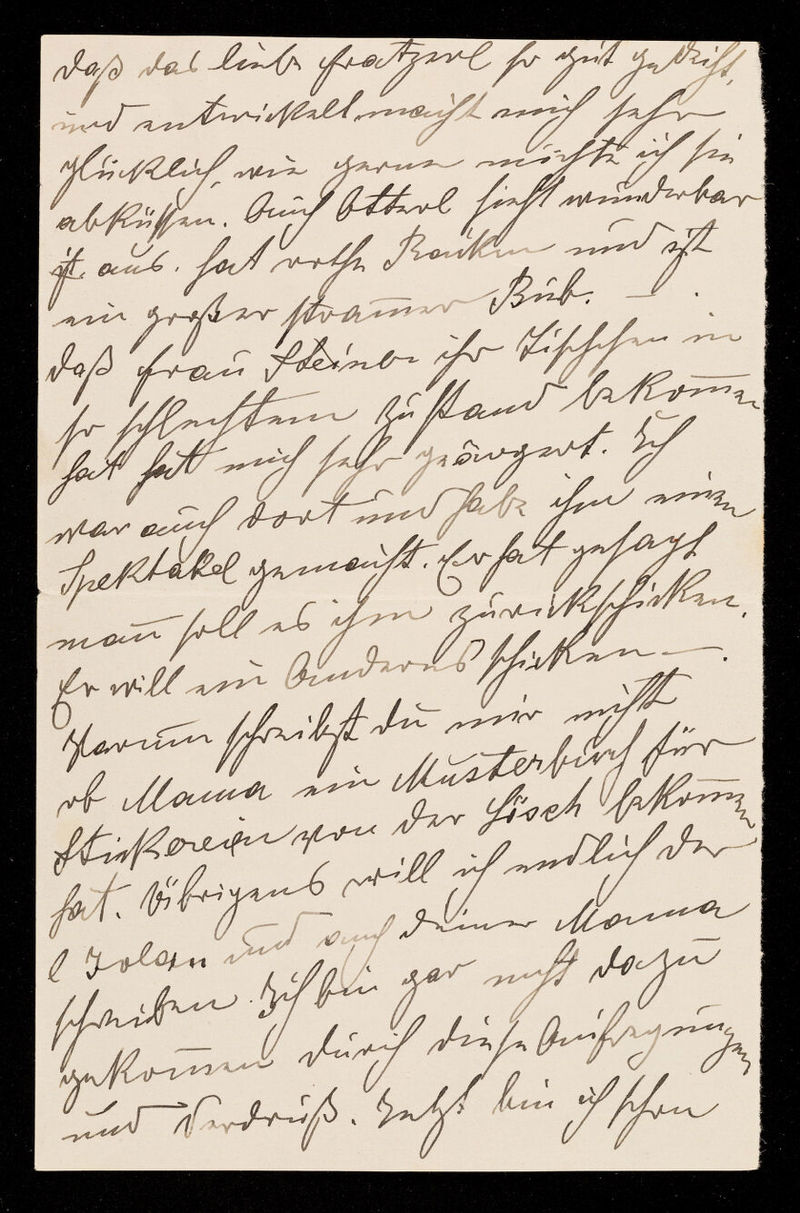 daß das liebe Fratzerl so gut gedeiht,
und entwickelt macht mich sehr
glücklich, wie gerne möchte ich sie
abküssen. Auch Otterl sieht wunderbar
aus. hat rothe Backen und ist
ein großer strammer Bub. —
daß Frau Steiner ihr Tischchen in
so schlechtem Zustand bekommen
hat hat mich sehr geärgert. Ich
war auch dort und habe ihm einen
Spektakel gemacht. Er hat gesagt
man soll es ihm zurückschicken.
Er will ein Anderes schicken —.
Warum schreibst du mir nicht
ob Mama ein Musterbuch für
Stickereien von der Lösch bekommen
hat. Übrigens will ich endlich der
l Jolan und auch deiner Mama
schreiben. Ich bin gar nicht dazu
gekommen durch diese Aufregungen
und Verdruß. Jetzt bin ich schon